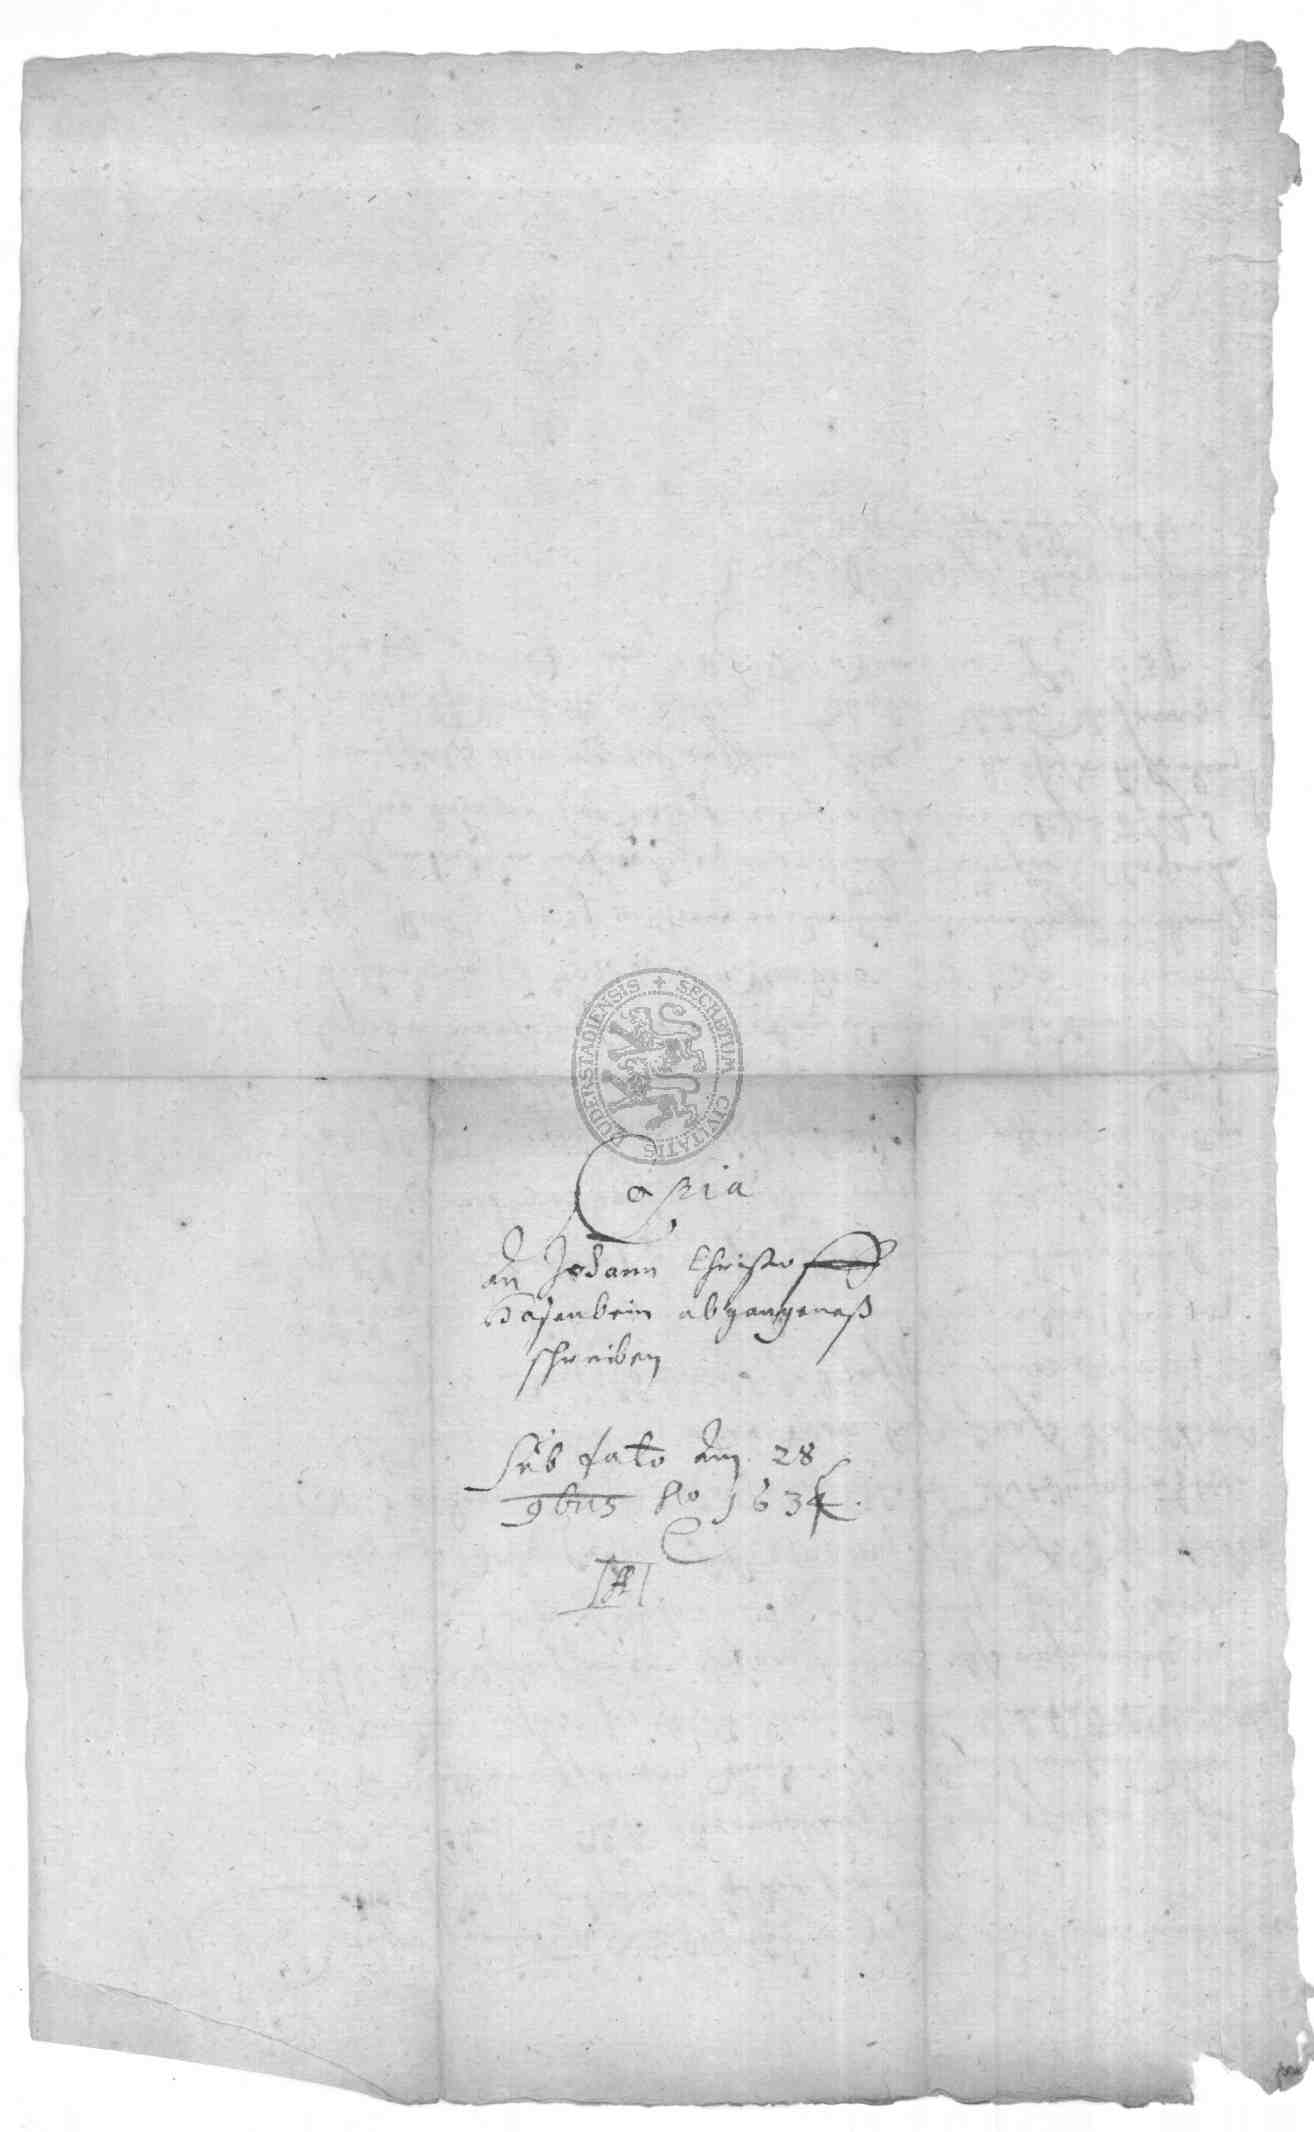 SECRETUM CIVITATIS DUDERSTADIENSIS
Copia
an Johann Christoff
Hasenbein abgangeneß
schreiben
sub dato am 28
9bris Ao 1634.